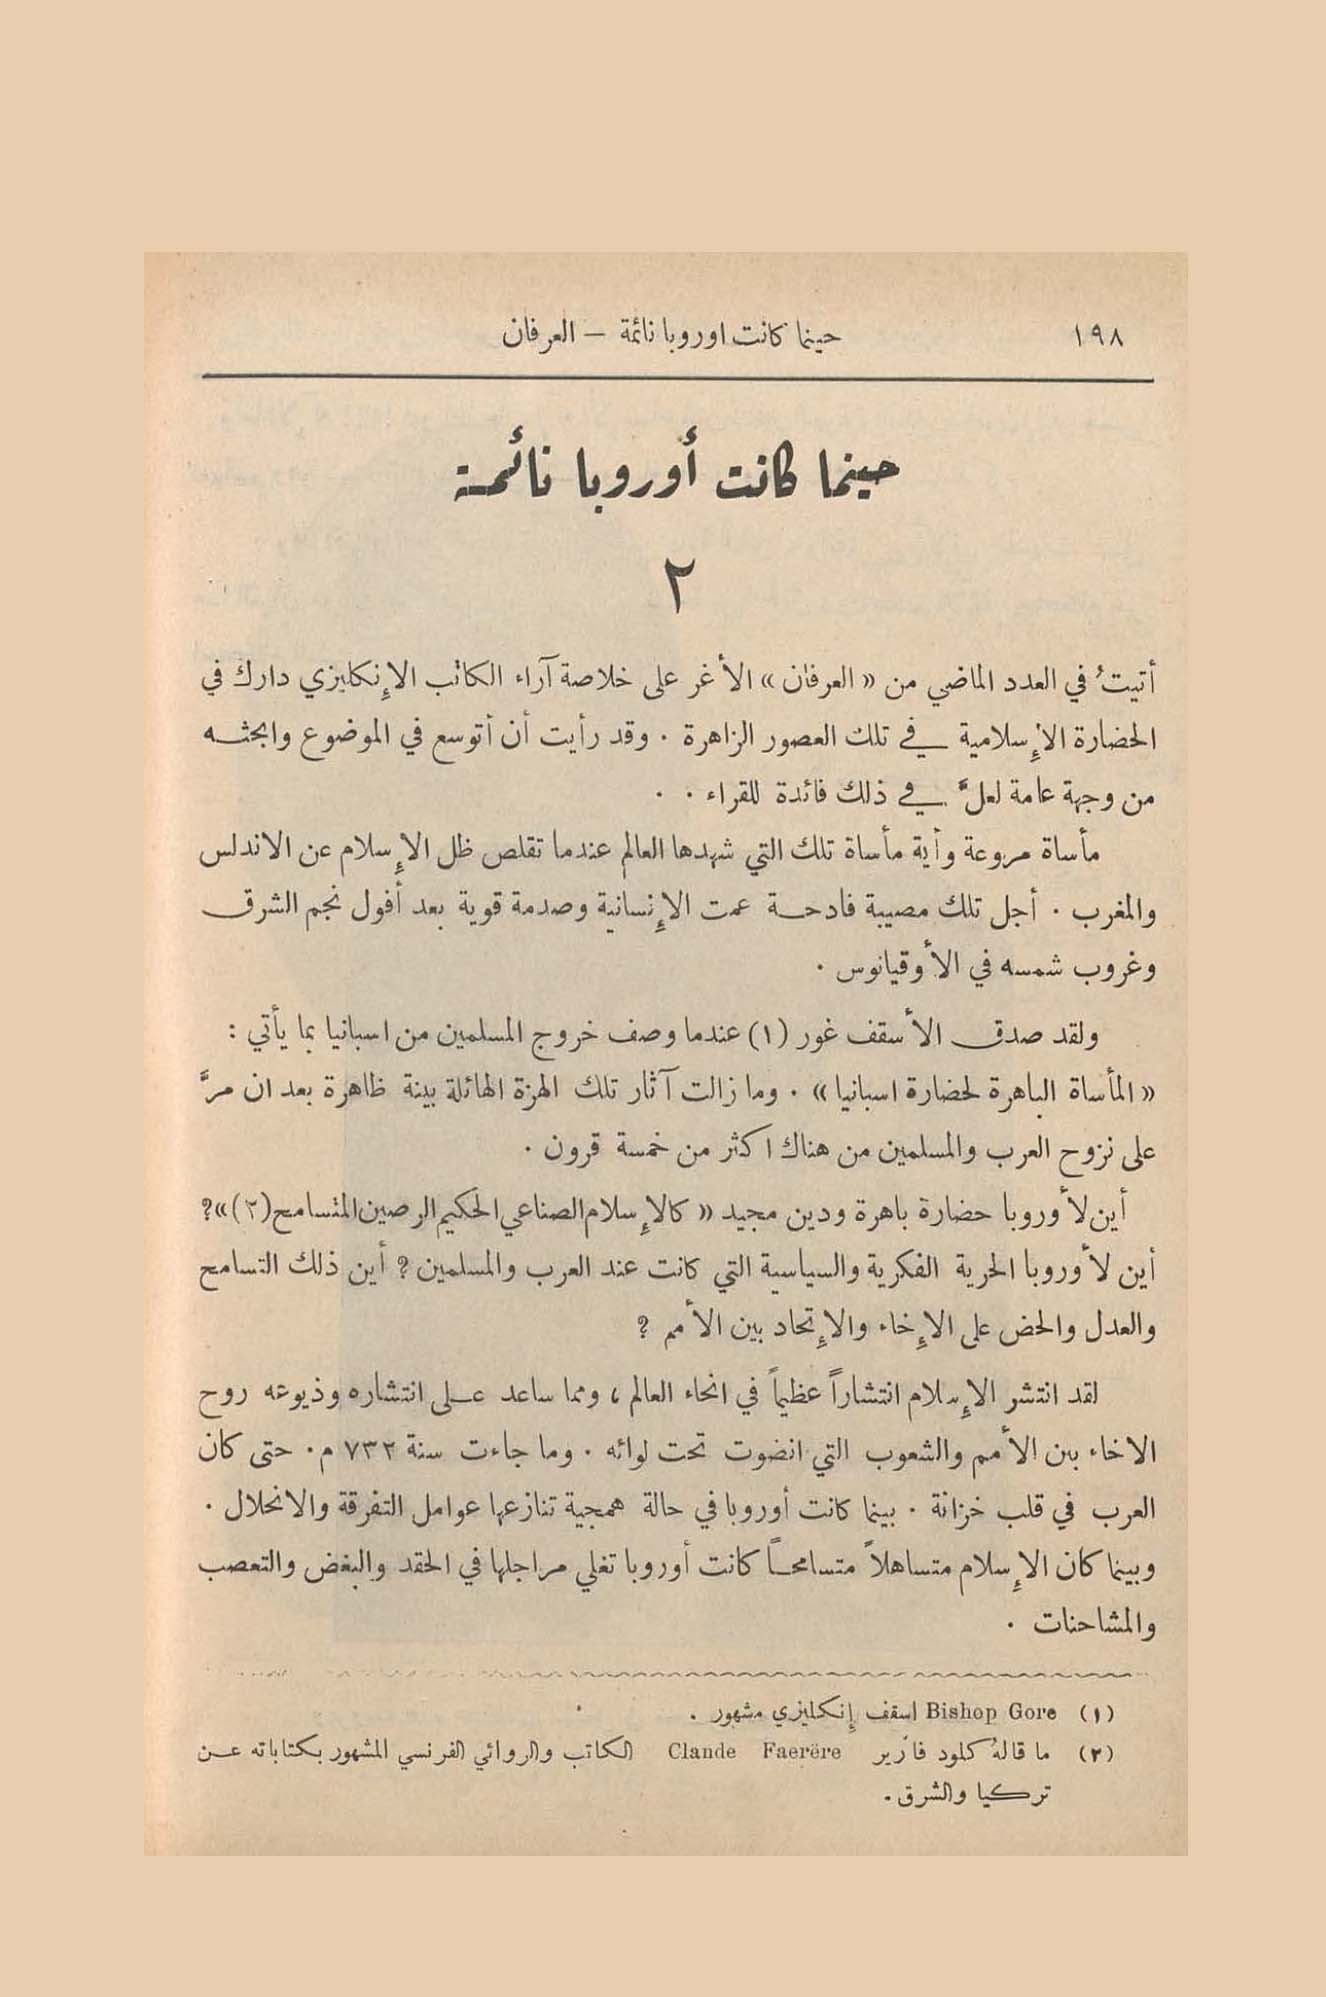 ١٩٨
حينما كانت اوروبا نائمة — العرفان
حينما كانت أوروبا نائمـة
٢
أتيتُ في العدد الماضي من « العرفان » الأغر على خلاصة آراء الكاتب الإنكليزي دارك في
الحضارة الإسلامية في تلك العصور الزاهرة . وقد رأيت أن أتوسع في الموضوع وابحثـه
من وجهة عامة لعلَّ في ذلك فائدة للقراء . .
مأساة مروعة وأية مأساة تلك التي شهدها العالم عندما تقلص ظل الإسلام عن الاندلس
والمغرب . أجل تلك مصيبة فادحـة عمت الإنسانية وصدمة قوية بعد أفول نجم الشرق
وغروب شمسه في الأوقيانوس .
ولقد صدق الأسقف غور (١) عندما وصف خروج المسلمين من اسبانيا بما يأتي :
« المأساة الباهرة لحضارة اسبانيا » . وما زالت آثار تلك الهزة الهائلة بينة ظاهرة بعد ان مرَّ
على نزوح العرب والمسلمين من هناك اكثر من خمسة قرون .
أين لأوروبا حضارة باهرة ودين مجيد « كالإسلام الصناعي الحكيم الرصين المتسامح (٢) »؟
أين لأوروبا الحرية الفكرية والسياسية التي كانت عند العرب والمسلمين ؟ أين ذلك التسامح
والعدل والحض على الإخاء والإتحاد بين الأمم ؟
لقد انتشر الإسلام انتشاراً عظيماً في انحاء العالم ، ومما ساعد عـلى انتشاره وذيوعه روح
الاخاء بين الأمم والشعوب التي انضوت تحت لوائه . وما جاءت سنة ٧٣٢ م . حتى كان
العرب في قلب خزانة . بينما كانت أوروبا في حالة همجية تنازعها عوامل التفرقة والانحلال .
وبينما كان الإسلام متساهلاً متسامحـاً كانت أوروبا تغلي مراجلها في الحقد والبغض والتعصب
والمشاحنات .
(١) Bishop Gore اسقف إنكليزي مشهور .
(٢) ما قالهُ كلود فارير Clande Faerëre الكاتب والروائي الفرنسي المشهور بكتاباته عـن
تركيا والشرق .